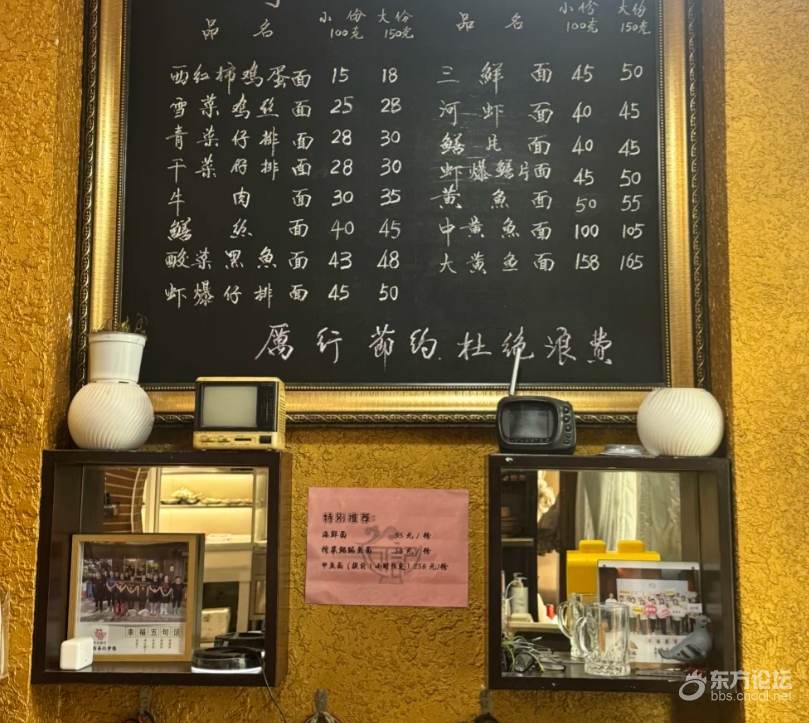 品名 小份100克 大份150克
西红柿鸡蛋面 15 18
雪菜鸡丝面 25 28
青菜仔排面 28 30
干菜仔排面 28 30
牛肉面 30 35
鳝丝面 40 45
酸菜黑鱼面 43 48
虾爆仔排面 45 50
品名 小份100克 大份150克
三鲜面 45 50
河虾面 40 45
鳝片面 40 45
虾爆鳝片面 45 50
黄鱼面 50 55
中黄鱼面 100 105
大黄鱼面 158 165
厲行節约.杜绝浪费
特别推荐:
海鲜面 35元/份
38元/份
甲鱼面 258元/份
幸福五
东方论坛
bbs.cnool.net